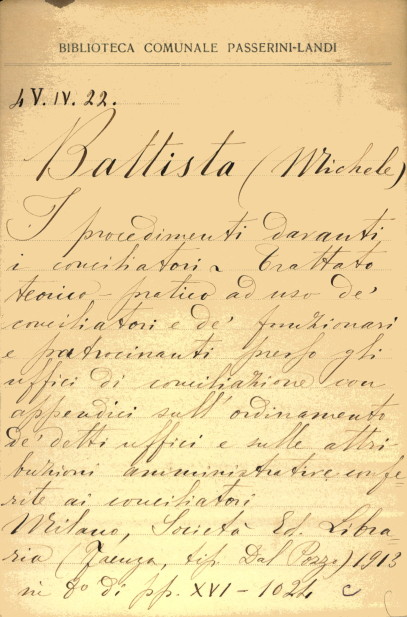 BIBLIOTECA COMUNALE PASSERINI-LANDI
4 V. IV. 22.
Battista (Michele)
I procedimenti davanti
i conciliatori. Trattato
teorico-pratico ad uso de'
conciliatori e de' funzionari
e patrocinanti presso gli
uffici di conciliazione con
appendici sull'ordinamento
de' detti uffici e sulle attri
buzioni amministrative confe
rite ai conciliatori
Milano, Società Ed. Libra
ria (Faenza, tip. Dal Pozzo) 1913
in 8o di pp. XVI - 1024 c